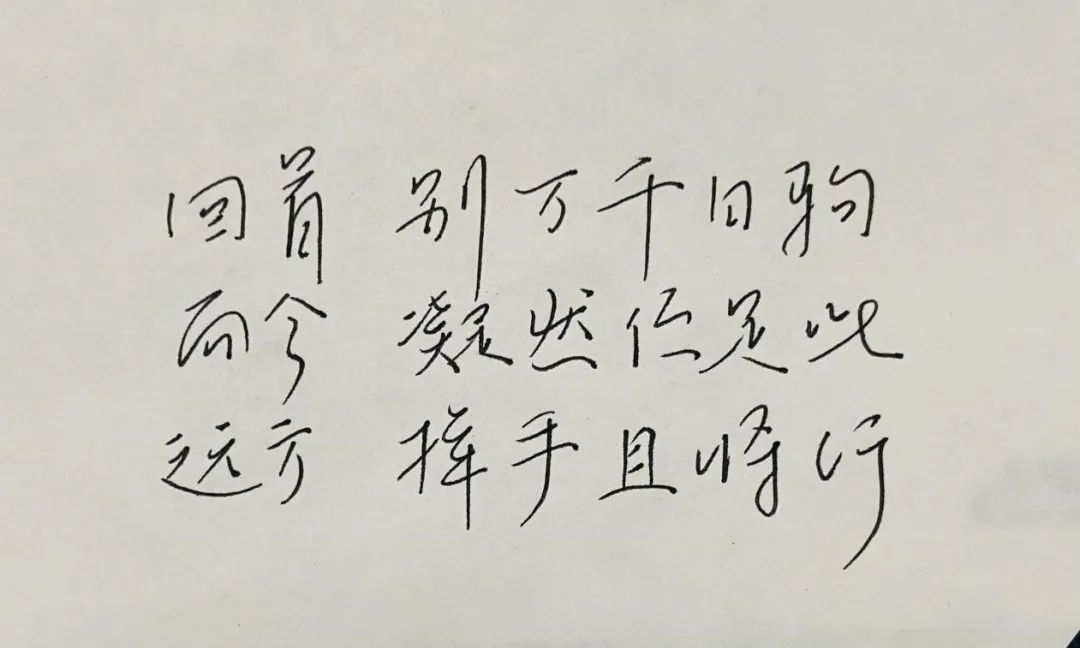 回首 别万千日驹
而今 凝然伫足此
远方 挥手且将行